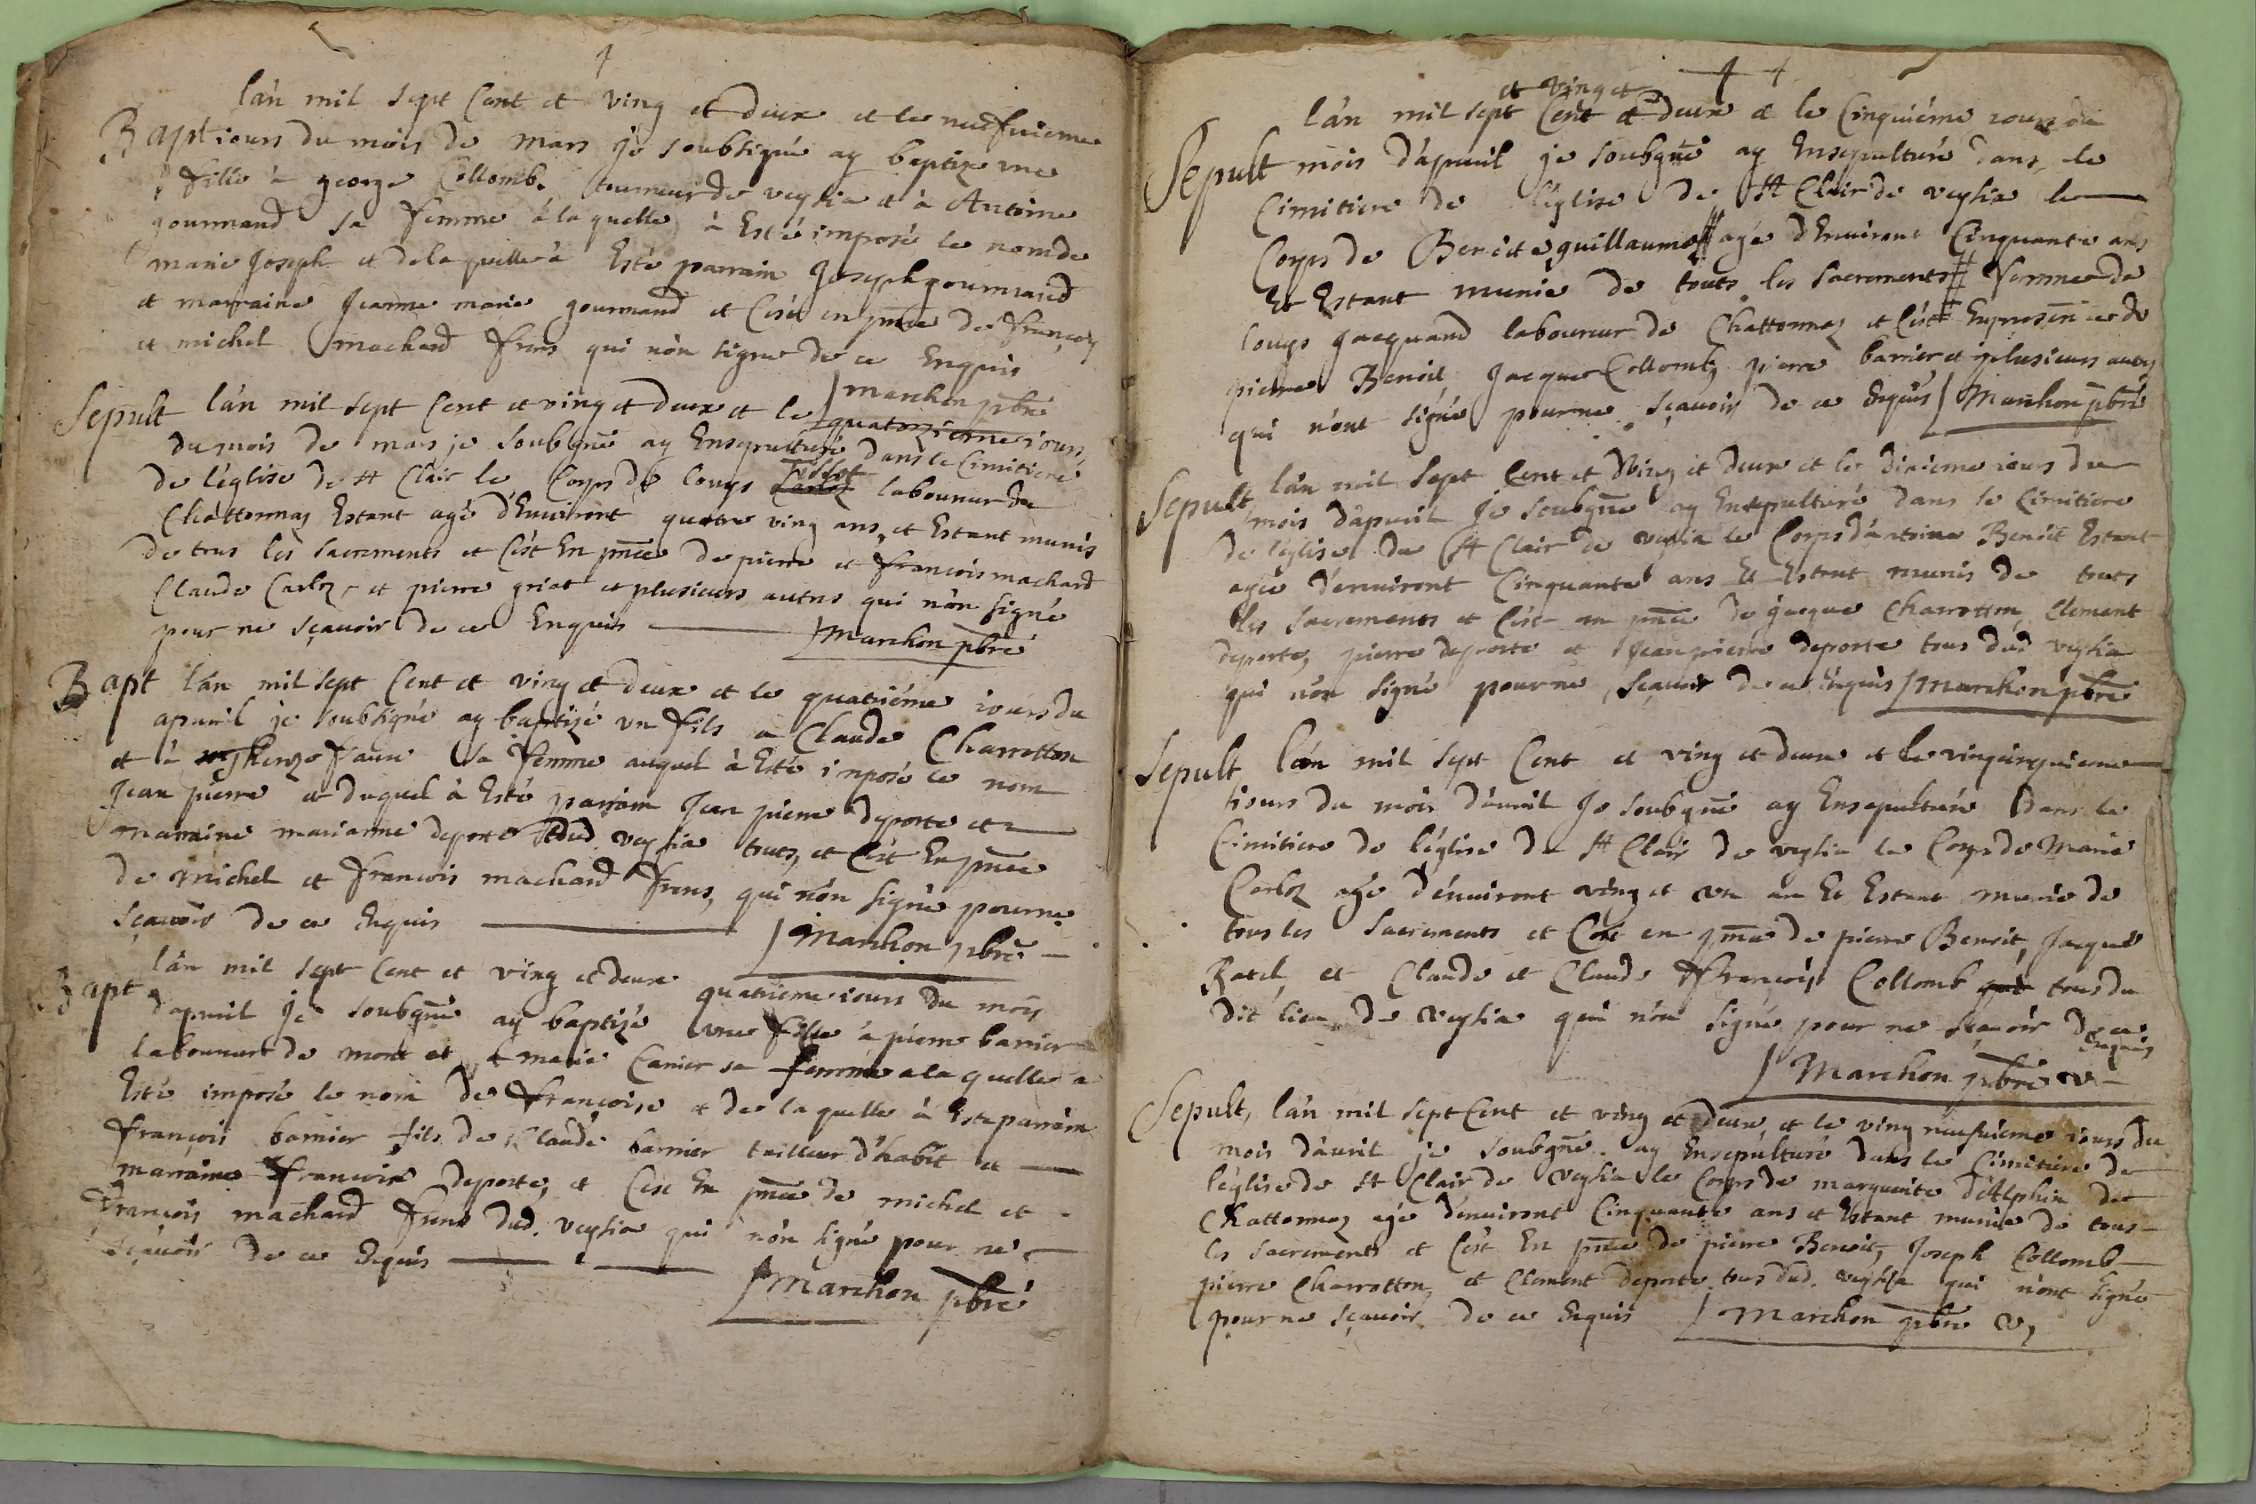 l'án mil sept Cent et ving et deux et le neufuieme
Bapt iours du mois de mars je soubsigné ay baptize vne
fille à george Collomb tourneur de veyssia et à Antoine
gourmand sa femme à la quelle à Esté imposé le nom de
marie Joseph et de la quelle à Esté parrain Joseph gourmand
et marraine Jeanne marie gourmand et C'ést en pnce de françois
et michel machard freres qui nón signé de ce Enquis
Marchon pbre
Sepult l'án mil sept Cent et ving et deux et le quatorzieme iours
du mois de mars je soubgné ay Ensepulturé dans le Cimitiere
de l'église de st Clair le Corps de Louys Tissot laboureur de
Chattonnaz Estant agé d'Enuiront quatre ving ans, et Estant munis
de tous les sacrements et C'ést En pnce de pierre et françois machard
Claude Carloz et pierre griat et plusieurs autres qui nón signé
pour ne sçauoir de ce Enquis Marchon pbre
Bapt l'án mil sept Cent et ving et deux et le quatriéme iours du
apuril je soubsigné ay baptizé vn fils a Claude Charrotton
et à faure sa femme auquel à Esté imposé le nom
Jean pierre et duquel à Esté parrain Jean pierre deporte et
marraine marianne deporte dud. veyssia touts, et C'ést En pnce
de michel et françois machard freres, qui nón signé pour ne
sçauoir de ce Enquis Marchon pbre
l'án mil sept Cent et ving et deux quatrieme iours du mois
Bapt d'apuril je soubgné ay baptizé vne fille à pierre barrier
laboureur de mont et marie Carrier sa femme a la quelle a
Esté imposé le nom de françoise et de la quelle à Esté parrain
françois barrier fils de Claude barrier tailleur d'habit et
marraine françoise deporte, et C'est En pnce de michel et
françois machard freres dud. veyssia qui nón signé pour ne
sçauoir de ce Enquis
Marchon pbre
et ving et
l'án mil sept Cent et deux et le Cinquiéme iours du
Sepult mois d'apuril je soubgné ay Ensepulturé dans le
Cimitiere de l'église de st Clair de veyssia le
Corps de Benoite guillaume agé d'Enuiront Cinquante ans
Et Estant munie de touts les sacrements femme de
Louys Jacquand laboureur de Chattonnaz et C'ést En presence de
pierre Benoit, Jacque Collomb, pierre barrier et plusieurs autres
qui n'ont signé pour ne sçauoir de ce Enquis Marchon pbre
Sepult, l'án mil sept Cent et Ving et deux et le dixieme iours du
mois d'apuril je soubgné ay Ensepulturé dans le Cimitiere
de l'église de st Clair de veyssia le Corps d'antoine Benoit Estant
agé d'enuiront Cinquante ans Et Estant munis de touts
les sacrements et C'ést en pnce de jacque Charrotton, Clement
deporte, pierre deporte et Jean pierre deporte tous dud veyssia
qui nón signé pour ne sçauoir de ce Enquis Marchon pbre
Sepult l'án mil sept Cent et ving et deux et le vingcinquieme
iours du mois d'auril je soubgné ay Ensepulturé dans le
Cimitiere de l'église de st Clair de veyssia le Corps de Marie
Carloz agé d'énuiront ving et vn an Et Estant munie de
tous les sacrements et C'ést en pnce de pierre Benoit, Jacque
Ratel, et Claude et Claude françois Collomb qui tous du
dit lieu de veyssia qui nón signé pour ne sçauoir de ce
Enquis
Marchon pbre
Sepult, l'án mil sept Cent et ving et deux et le ving neufuieme iours du
mois d'auril je soubgné ay Ensepulturé dans le Cimitiere de
l'église de st Clair de veyssia le Corps de marguerite d'Alphin de
Chattonnaz agé d'enuiront Cinquante ans et Estant munie de tous
les sacrements et C'ést En pnce de pierre Benoit, Joseph Collomb
pierre Charrotton, et Clement deporte tous dud. veyssia qui n'ont signé
pour ne sçauoir de ce Enquis Marchon pbre